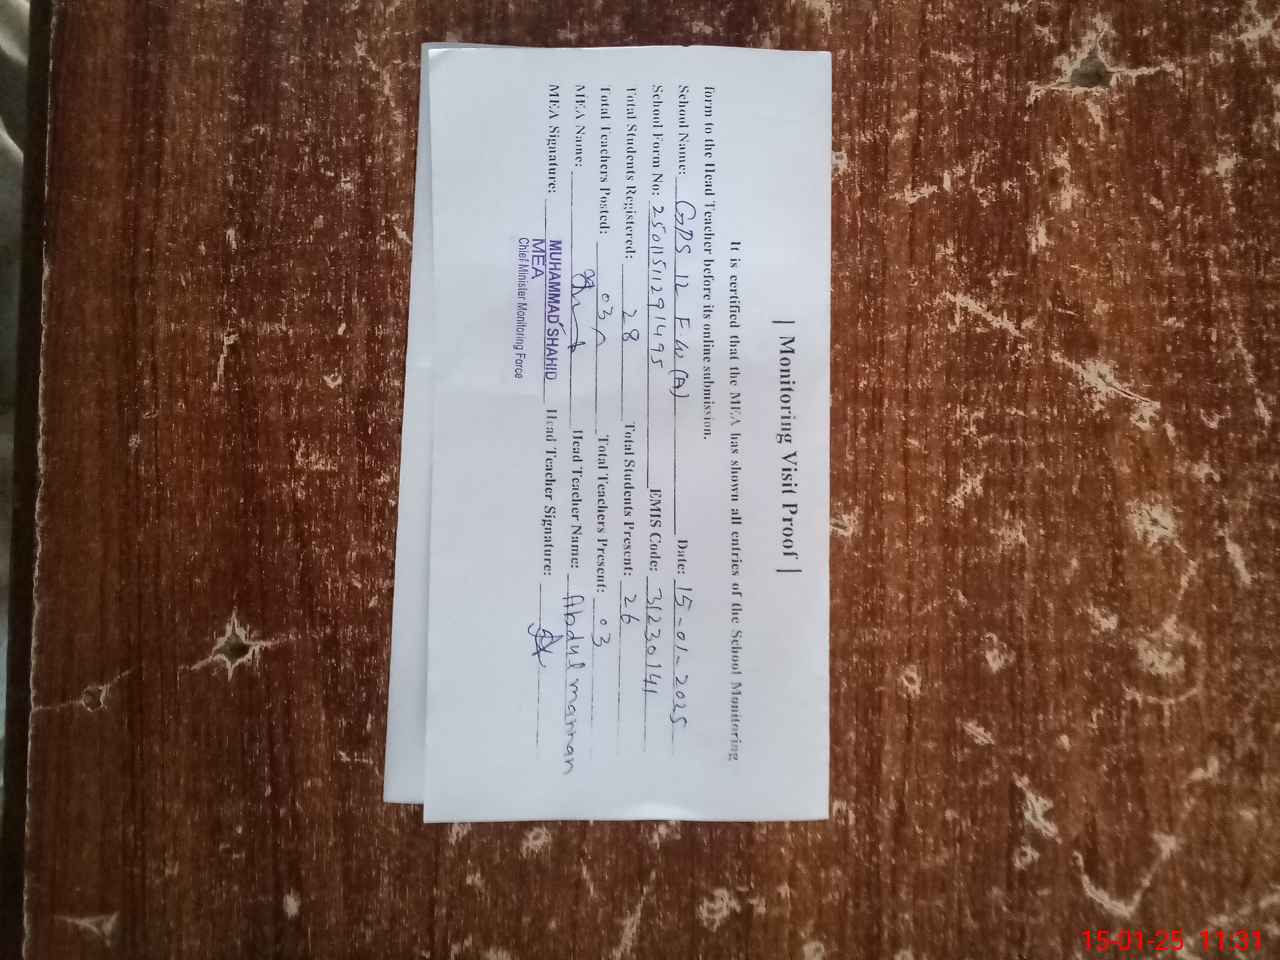 | Monitoring Visit Proof |
It is certified that the MEA has shown all entries of the School Monitoring
form to the Head Teacher before its online submission.
School Name: GPS 12 F W (A) Date: 15-01-2025
School Form No: 25011511291495 EMIS Code: 31230141
Total Students Registered: 28 Total Students Present: 26
Total Teachers Posted: 03 Total Teachers Present: 03
MEA Name: Head Teacher Name: Abdul mannan
MEA Signature: MUHAMMAD SHAHID Head Teacher Signature:
MEA
Chief Minister Monitoring Force
15-01-25 11:31